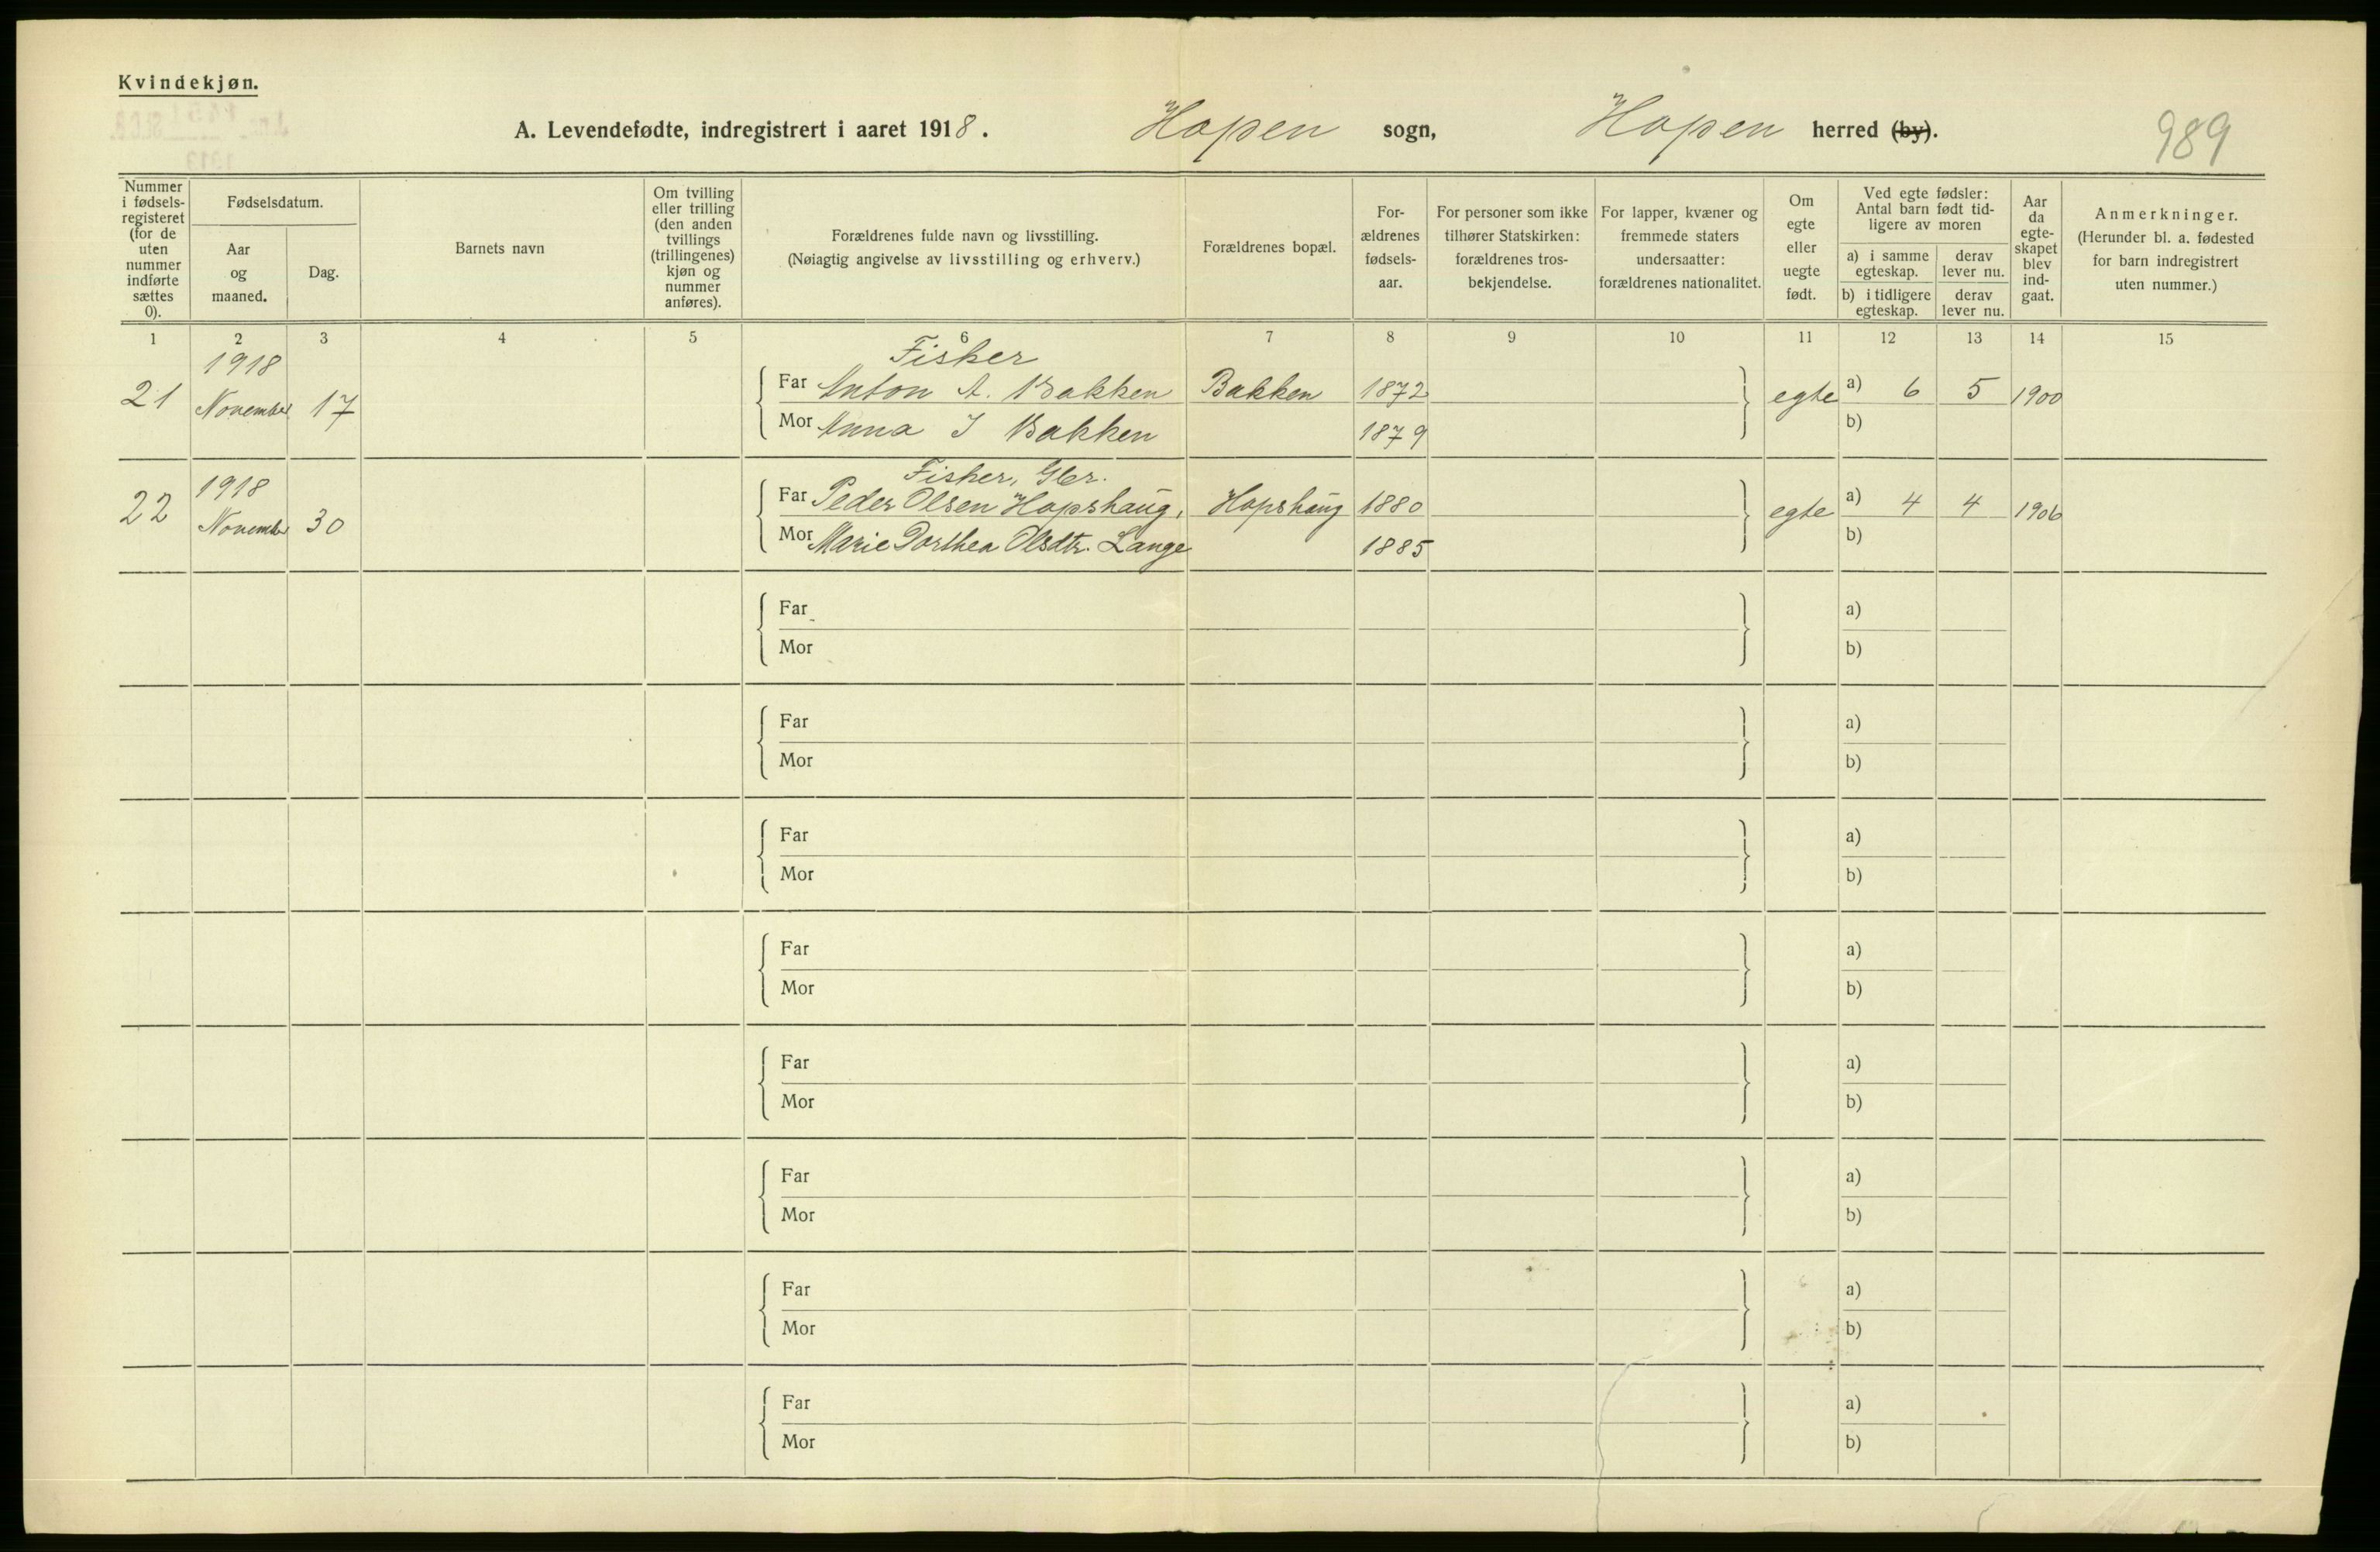 Kvindekjøn.
A. Levendefødte, indregistrert i aaret 1918. Hopen sogn, Hopen herred (by).
989
Nummer i fødsels-registeret (for de uten nummer indførte sættes 0).
Fødselsdatum.
Aar og maaned.
Dag.
Barnets navn
Om tvilling eller trilling (den anden tvillings (trillingenes) kjøn og nummer anføres).
Forældrenes fulde navn og livsstilling.
(Nøiagtig angivelse av livsstilling og erhverv.)
Forældrenes bopæl.
For-ældrenes fødsels-aar.
For personer som ikke tilhører Statskirken: forældrenes tros-bekjendelse.
For lapper, kvæner og fremmede staters undersaatter: forældrenes nationalitet.
Om egte eller uegte født.
Ved egte fødsler: Antal barn født tid-ligere av moren
a) i samme egteskap.
derav lever nu.
b) i tidligere egteskap.
derav lever nu.
Aar da egte-skapet blev ind-gaat.
Anmerkninger.
(Herunder bl. a. fødested for barn indregistrert uten nummer.)
1 2 3 4 5 6 7 8 9 10 11 12 13 14 15
1918 Fisker
21 November 17 Far Anton A. Bakken Bakken 1872 egte a) 6 5 1900
Mor Anna J Bakken 1879 b)
1918 Fisker, Gbr.
22 November 30 Far Peder Olsen Hopshaug, Hopshaug 1880 egte a) 4 4 1906
Mor Marie Dorthea Olsdtr. Lange 1885 b)
Far a)
Mor b)
Far a)
Mor b)
Far a)
Mor b)
Far a)
Mor b)
Far a)
Mor b)
Far a)
Mor b)
Far a)
Mor b)
Far a)
Mor b)